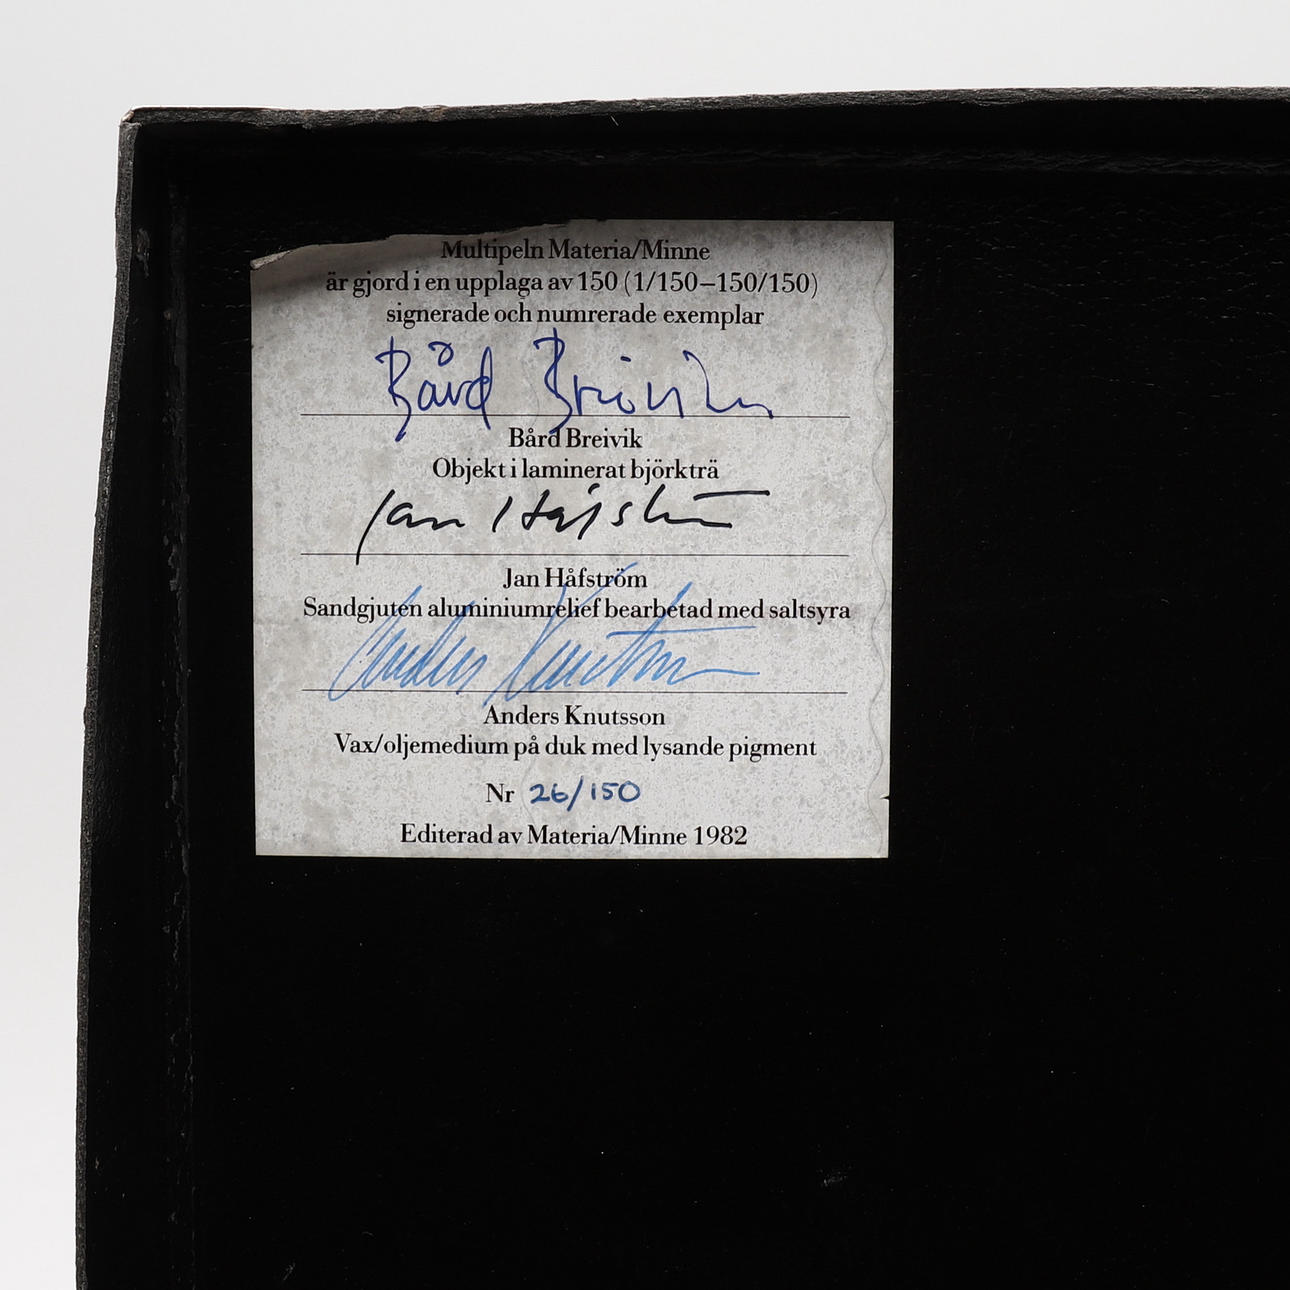 Multipeln Materia/Minne
är gjord i en upplaga av 150 (1/150–150/150)
signerade och numrerade exemplar
Bård Breivik
Bård Breivik
Objekt i laminerat björkträ
Jan Håfström
Jan Håfström
Sandgjuten aluminiumrelief bearbetad med saltsyra
Anders Knutsson
Anders Knutsson
Vax/oljemedium på duk med lysande pigment
Nr 26/150
Editerad av Materia/Minne 1982